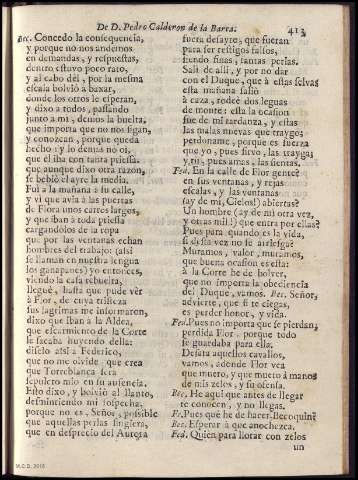 De D. Pedro Calderon de la Barca. 413
Bec. Concedo la consequencia,
y porque no nos andemos
en demandas, y respuestas,
dentro estuvo poco rato,
y al cabo dèl, por la mesma
escala bolviò a baxar,
donde los otros le esperan,
y dixo a todos, passando
junto a mi, demos la buelta,
que importa que no nos sigan,
y conozcan, porque queda
hecho: yo lo demàs no oì,
que èl iba con tanta priessa,
que aunque dixo otra razon,
se bebiò el ayre la media.
Fui a la mañana à su calle,
y vi que avia à las puertas
de Flora unos carros largos,
y que iban à toda priessa
cargandolos de ropa
que por las ventanas echan
hombres del trabajo: (assi
se llaman en nuestra lengua
los ganapanes) yo entonces,
viendo la casa rebuelta,
lleguè, hasta que pude vèr
à Flor, de cuya tristeza
sus lagrimas me informaron,
dixo que iban à la Aldea,
que escarmiento de la Corte
le sacaba huyendo della:
diselo assi à Federico,
que no me olvide que crea
que Torreblanca serà
sepulcro mio en su ausencia.
Esto dixo, y bolviò al llanto,
desmintiendo mi sospecha,
porque no es, Señor, possible
que aquellas perlas fingiera,
que en desprecio del Aurora
fuera desayre, que fueran
para ser testigos falsos,
siendo finas, tantas perlas.
Salì de alli, y por no dar
con el Duque, que à estas selvas
esta mañana saliò
à caza, rodeè dos leguas
de monte: esta la ocasion
fue de mi tardanza, y estas
las malas nuevas que traygo;
perdoname, porque es fuerza
que yo, pues sirvo, las trayga;
y tu, pues amas, las sientas.
Fed. En la calle de Flor gente?
en sus ventanas, y rejas
escalas, y las ventanas
(ay de mi, Cielos!) abiertas?
Un hombre (ay de mi otra vez,
y otras mil!) que entra por ellas?
Pues para quando es la vida,
si desta vez no se arriesga?
Muramos, valor, muramos,
que buena ocasion es esta:
à la Corte he de bolver,
que no importa la obediencia
del Duque, vamos. Bec. Señor,
advierte, que si te ciegas,
es perder honor, y vida.
Fed. Pues no importa que se pierdan,
perdida Flor, porque todo
se guardaba para ella.
Desata aquellos cavallos,
vamos, adonde Flor vea
que muero, y que muero à manos
de mis zelos, y su ofensa.
Bec. He aqui que antes de llegar
te conocen, y no llegas.
Fe. Pues què he de hacer, Becoquin?
Bec. Esperar à que anochezca.
Fed. Quien para llorar con zelos
un
M.C.D. 2018